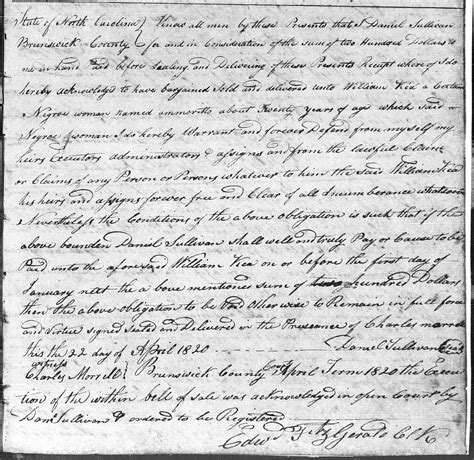 State of North Carolina } Know all men by these Presents that I Daniel Sullivan
Brunswick County } for and in Consideration of the sum of two Hundred Dollars to
me in hand Paid before Sealing and Delivering of these Presents Receipt where of I do
hereby acknowledge to have bargained Sold and delivered unto William Kea a Certain
Negroe woman named about twenty years of age which said
Negroe woman I do hereby Warrant and forever Defend from my self my
heirs Executors administrators & assigns and from the lawful Claim
or Claims of any Person or Persons whatever to him the said William Kea
his heirs and assigns forever free and Clear of all Incumberance whatsoever
Nevertheless the Conditions of the above obligation is such that if the
above bounden Daniel Sullivan Shall well and truly Pay or Cause to be
Paid unto the aforesaid William Kea on or before the first day of
January next the above mentioned sum of two hundred Dollars
then the above obligation to be Void other wise to Remain in full force
and Virtue signed Sealed and Delivered in the Presence of Charles
this the 22 day of April 1820 Daniel Sullivan Seal
witness
Charles Morrell } Brunswick County April Term 1820 the Execu
tion of the within bill of sale was acknowledged in open Court by
Danl Sullivan & ordered to be Registered
Edwd FitzGerald Clk